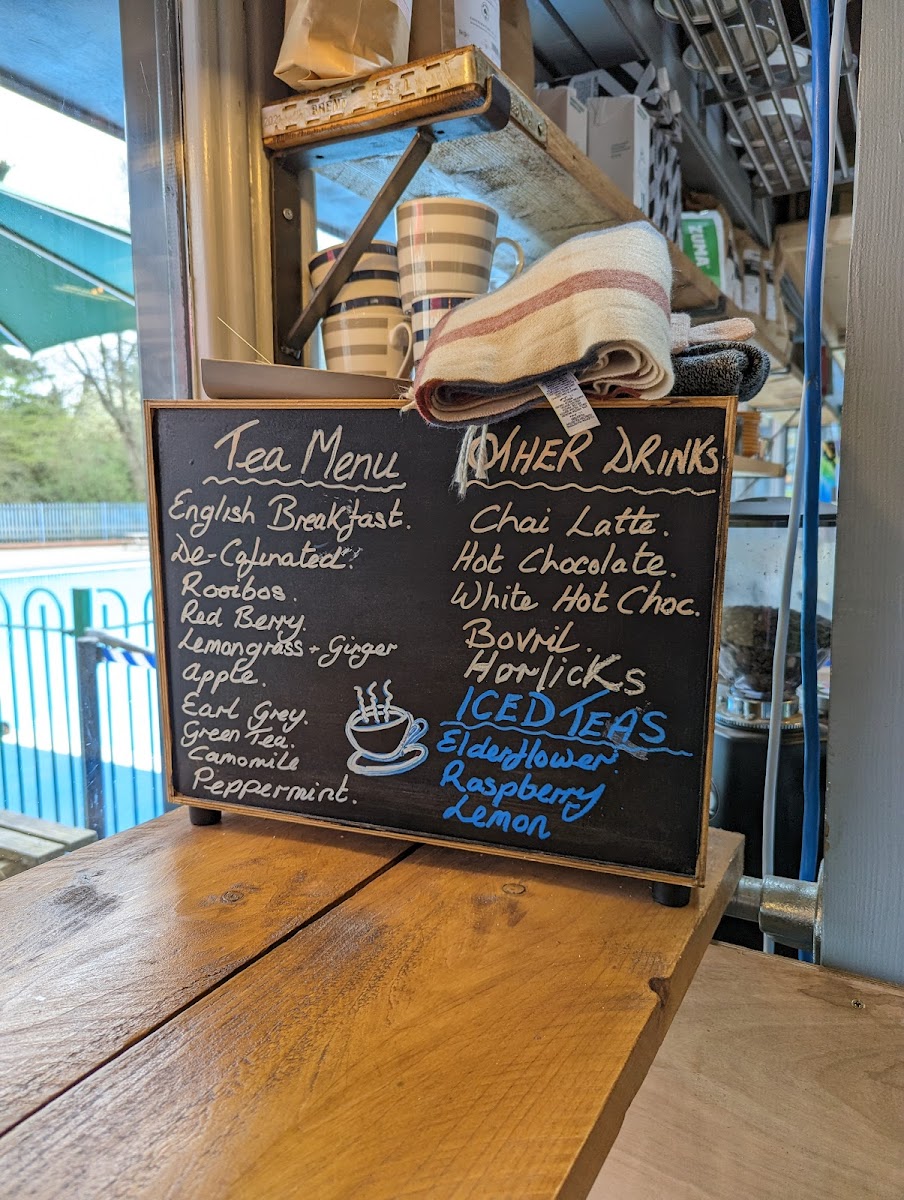 ZUMA
Tea Menu
English Breakfast.
De-Cafinated.
Rooibos.
Red Berry.
Lemongrass + Ginger
Apple.
Earl Grey.
Green Tea.
Camomile
Peppermint.
OTHER DRINKS
Chai Latte.
Hot Chocolate.
White Hot Choc.
Bovril.
Horlicks
ICED TEAS
Elderflower.
Raspberry
Lemon